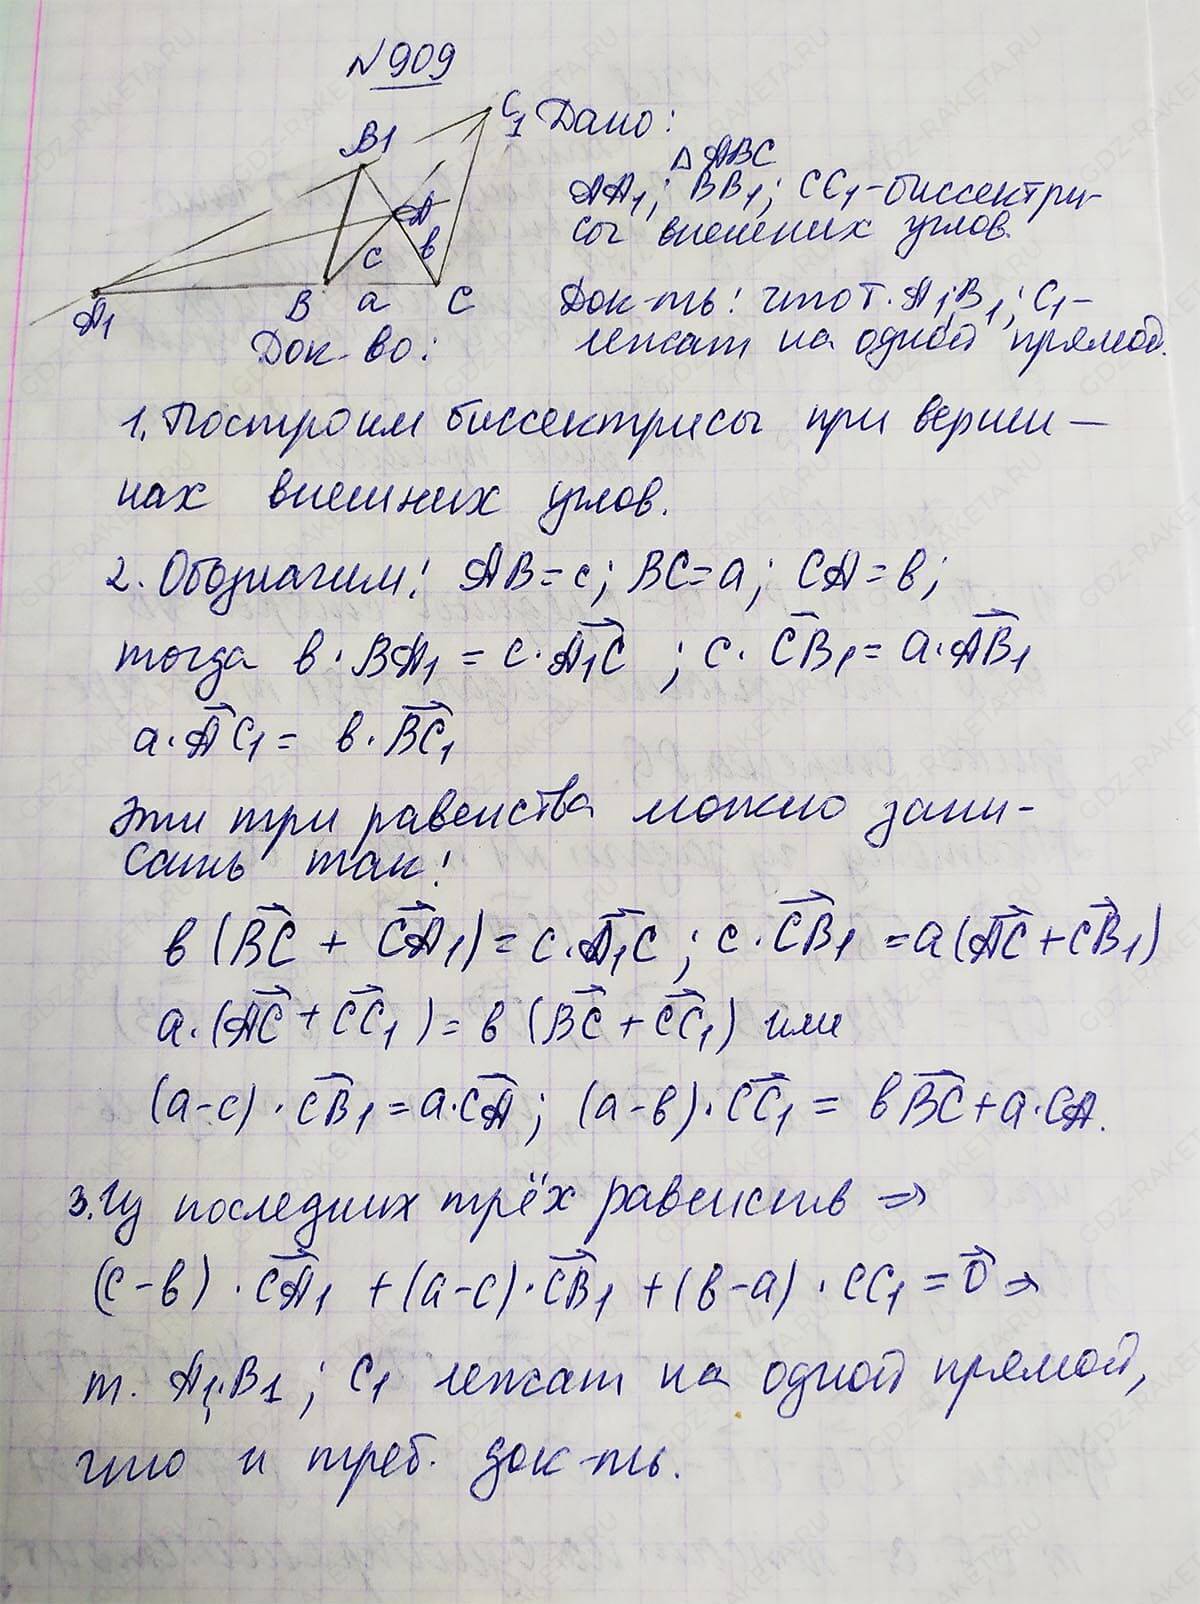 N 909
C1 Дано:
B1
Δ ABC
AA1; BB1; CC1 - биссектри-
сы внешних углов.
A
c b
A1 B a C
Док-ть: что т. A1; B1; C1 -
лежат на одной прямой.
Док-во:
1. Построим биссектрисы при верши-
нах внешних углов.
2. Обозначим: AB = c; BC = a; CA = b;
тогда b · BA1 = c · A1C ; c · CB1 = a · AB1
a · AC1 = b · BC1
Эти три равенства можно запи-
сать так:
b (BC + CA1) = c · A1C ; c · CB1 = a (AC + CB1)
a · (AC + CC1) = b (BC + CC1) или
(a-c) · CB1 = a · CA ; (a-b) · CC1 = b BC + a · CA.
3. Из последних трёх равенств ⇒
(c-b) · CA1 + (a-c) · CB1 + (b-a) · CC1 = 0 ⇒
т. A1, B1 ; C1 лежат на одной прямой,
что и треб. док-ть.
GDZ-RAKETA.RU